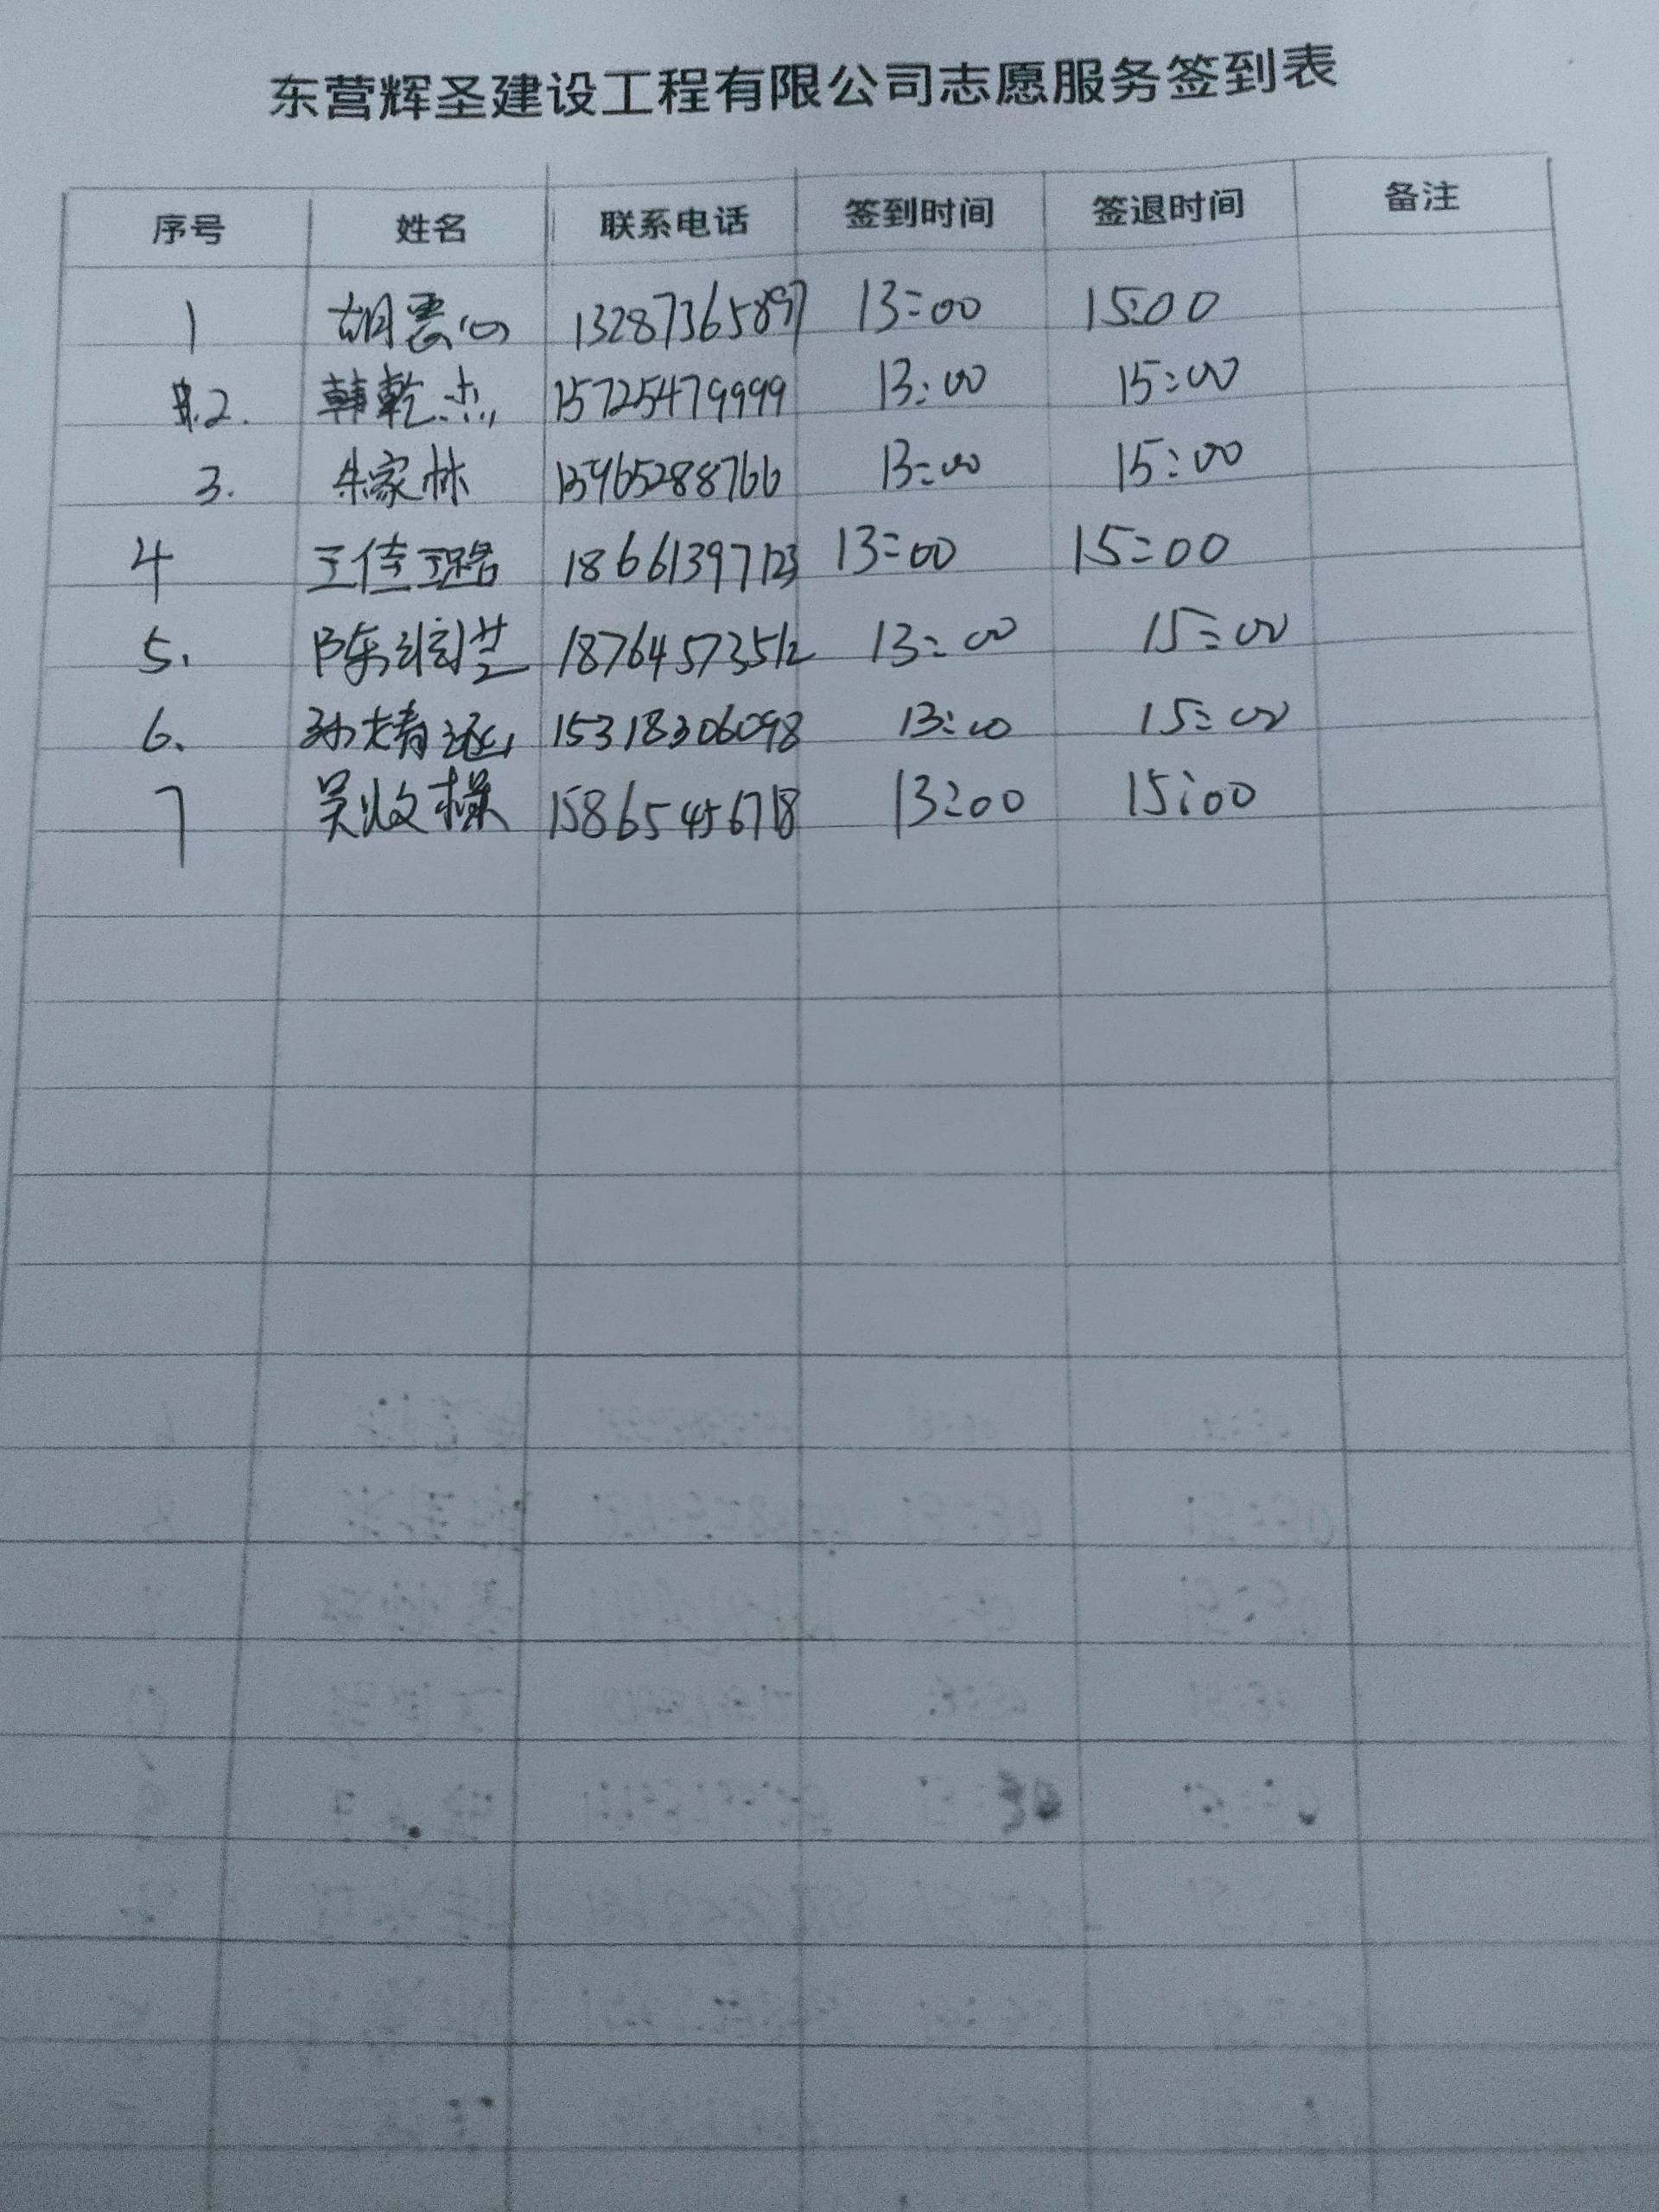 东营辉圣建设工程有限公司志愿服务签到表
序号 姓名 联系电话 签到时间 签退时间 备注
1 胡云心 13287365897 13:00 15:00
2. 韩乾杰 15725479999 13:00 15:00
3. 朱家林 13965288766 13:00 15:00
4 王佳璐 18661397123 13:00 15:00
5. 陈 芝 18764573512 13:00 15:00
6. 孙婧涵 15318306098 13:00 15:00
7 吴 13:00 15:00